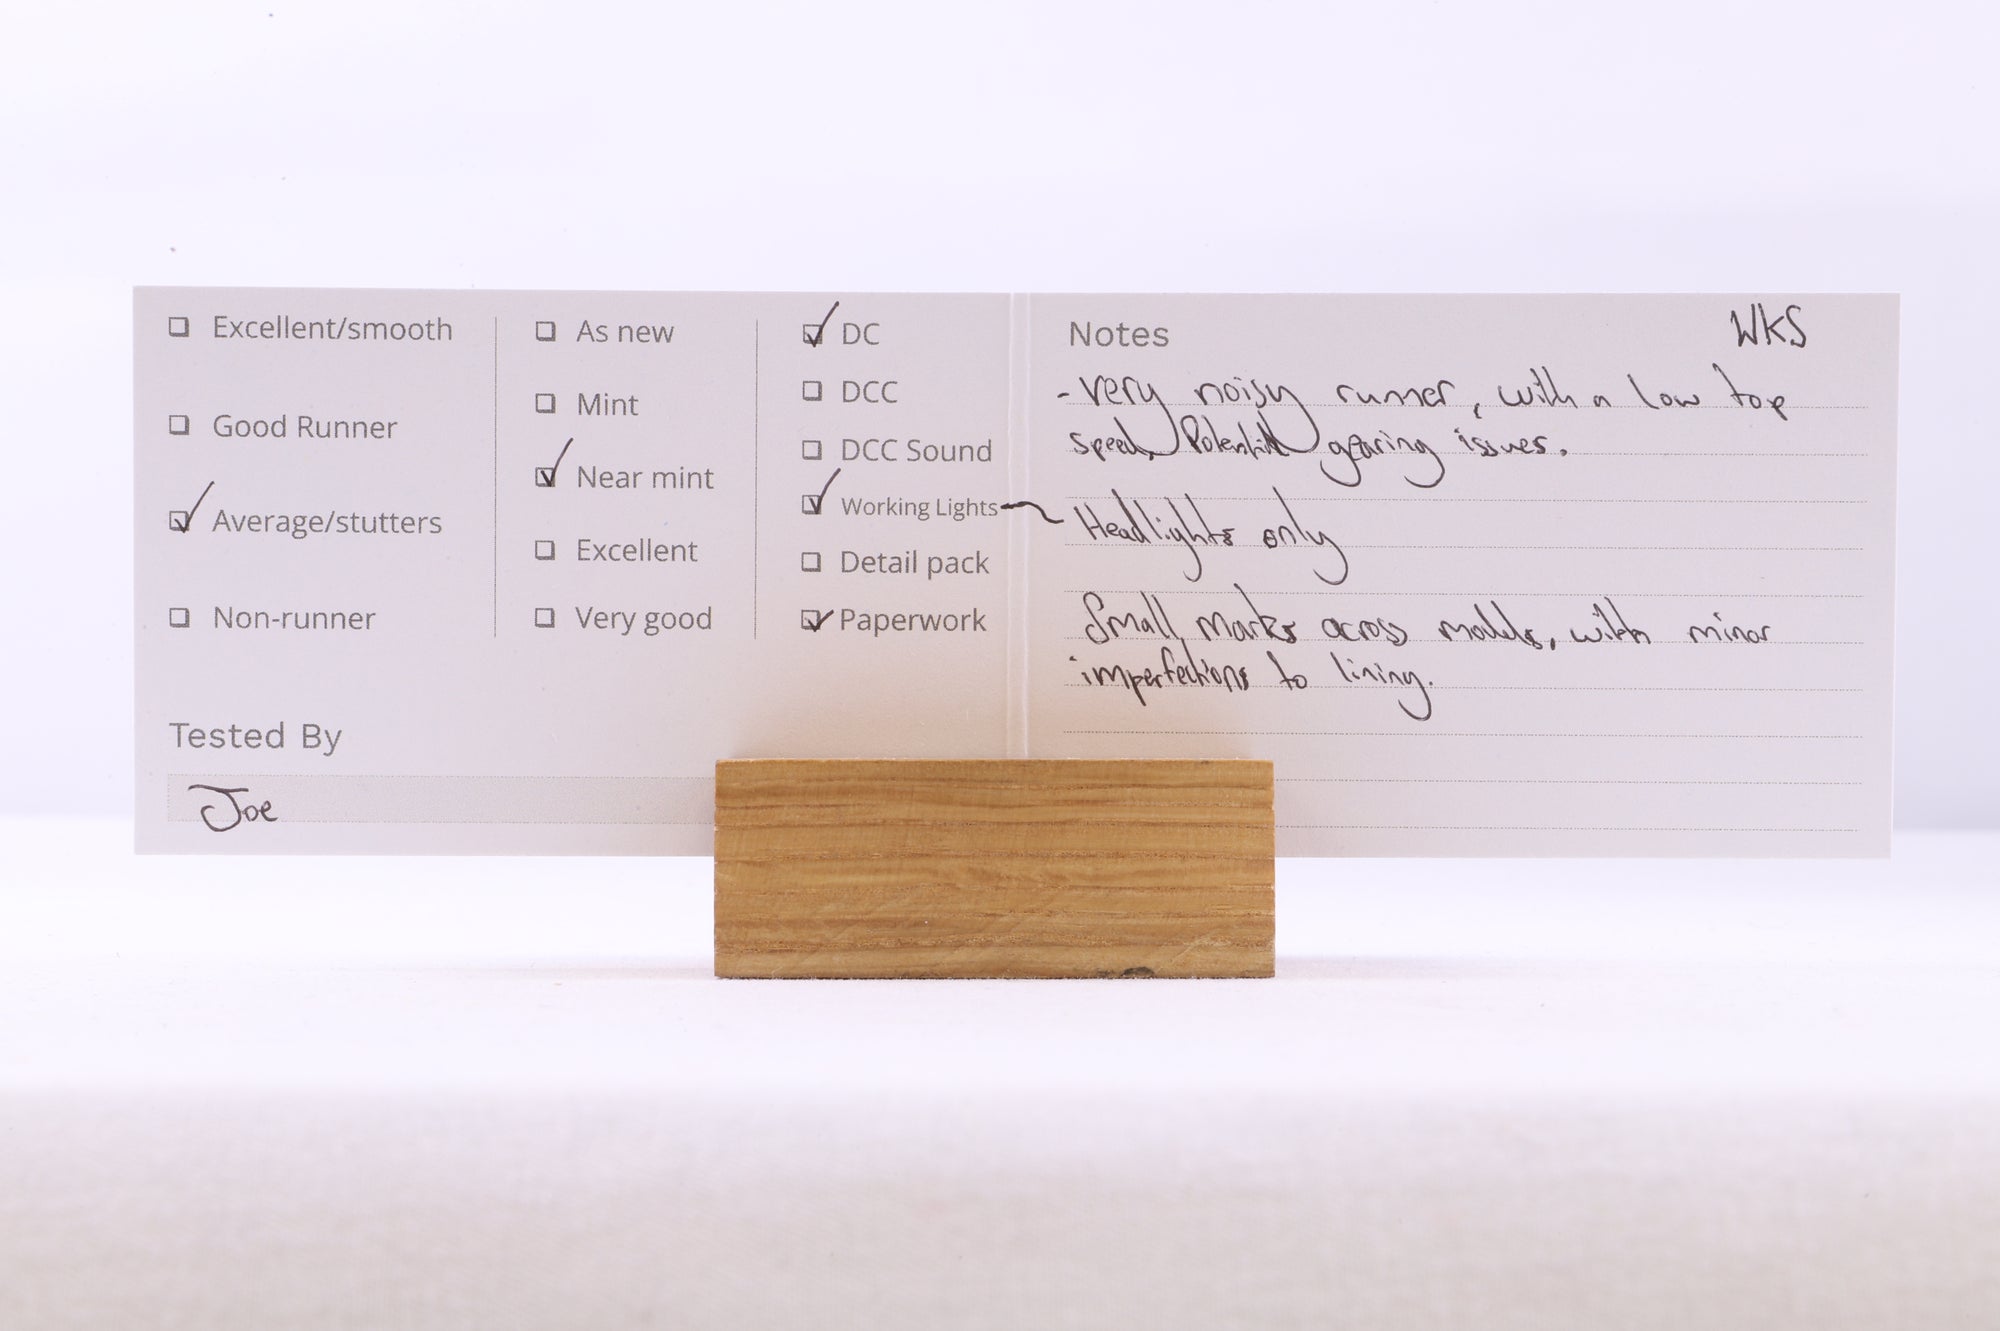 Excellent/smooth
Good Runner
Average/stutters
Non-runner
As new
Mint
Near mint
Excellent
Very good
DC
DCC
DCC Sound
Working Lights
Detail pack
Paperwork
Tested By
Joe
Notes
WKS
- very noisy runner, with a low top
speed. Potential gearing issues.
Headlights only
Small marks across models, with minor
imperfections to lining.